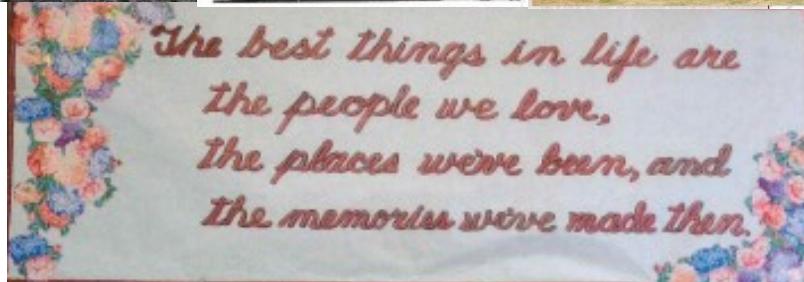 The best things in life are
the people we love,
the places we've been, and
the memories we've made then.